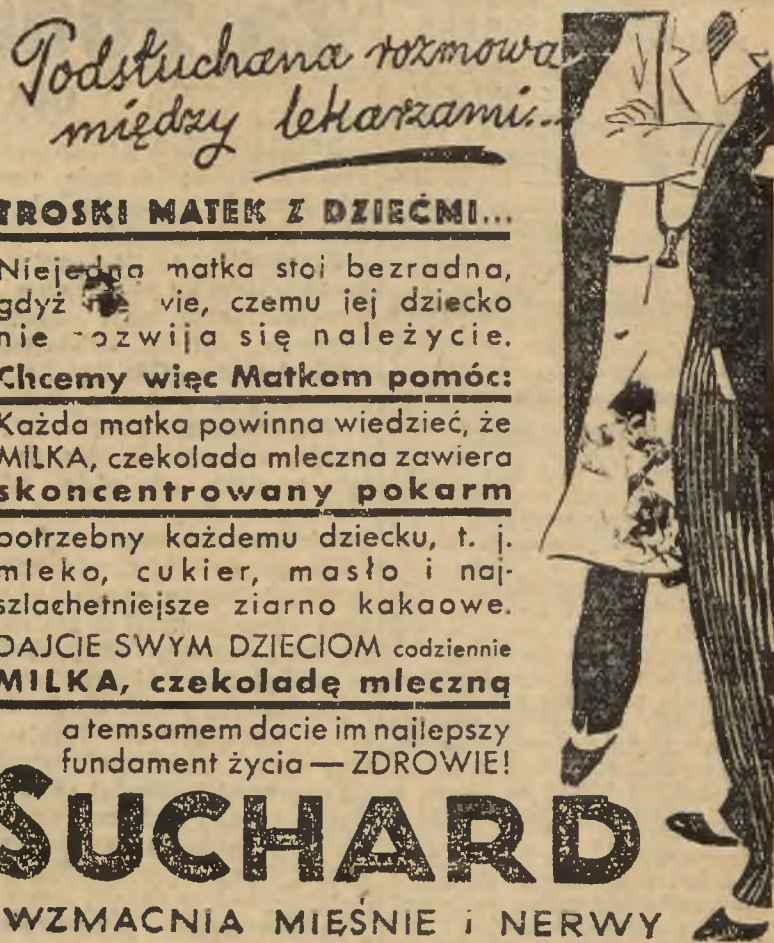 Podsłuchana rozmowa
między lekarzami...
TROSKI MATEK Z DZIEĆMI...
Niejedna matka stoi bezradna,
gdyż wie, czemu jej dziecko
nie rozwija się należycie.
Chcemy więc Matkom pomóc:
Każda matka powinna wiedzieć, że
MILKA, czekolada mleczna zawiera
skoncentrowany pokarm
potrzebny każdemu dziecku, t. j.
mleko, cukier, masło i naj-
szlachetniejsze ziarno kakaowe.
DAJCIE SWYM DZIECIOM codziennie
MILKA, czekoladę mleczną
a temsamem dacie im najlepszy
fundament życia — ZDROWIE!
SUCHARD
WZMACNIA MIĘŚNIE i NERWY